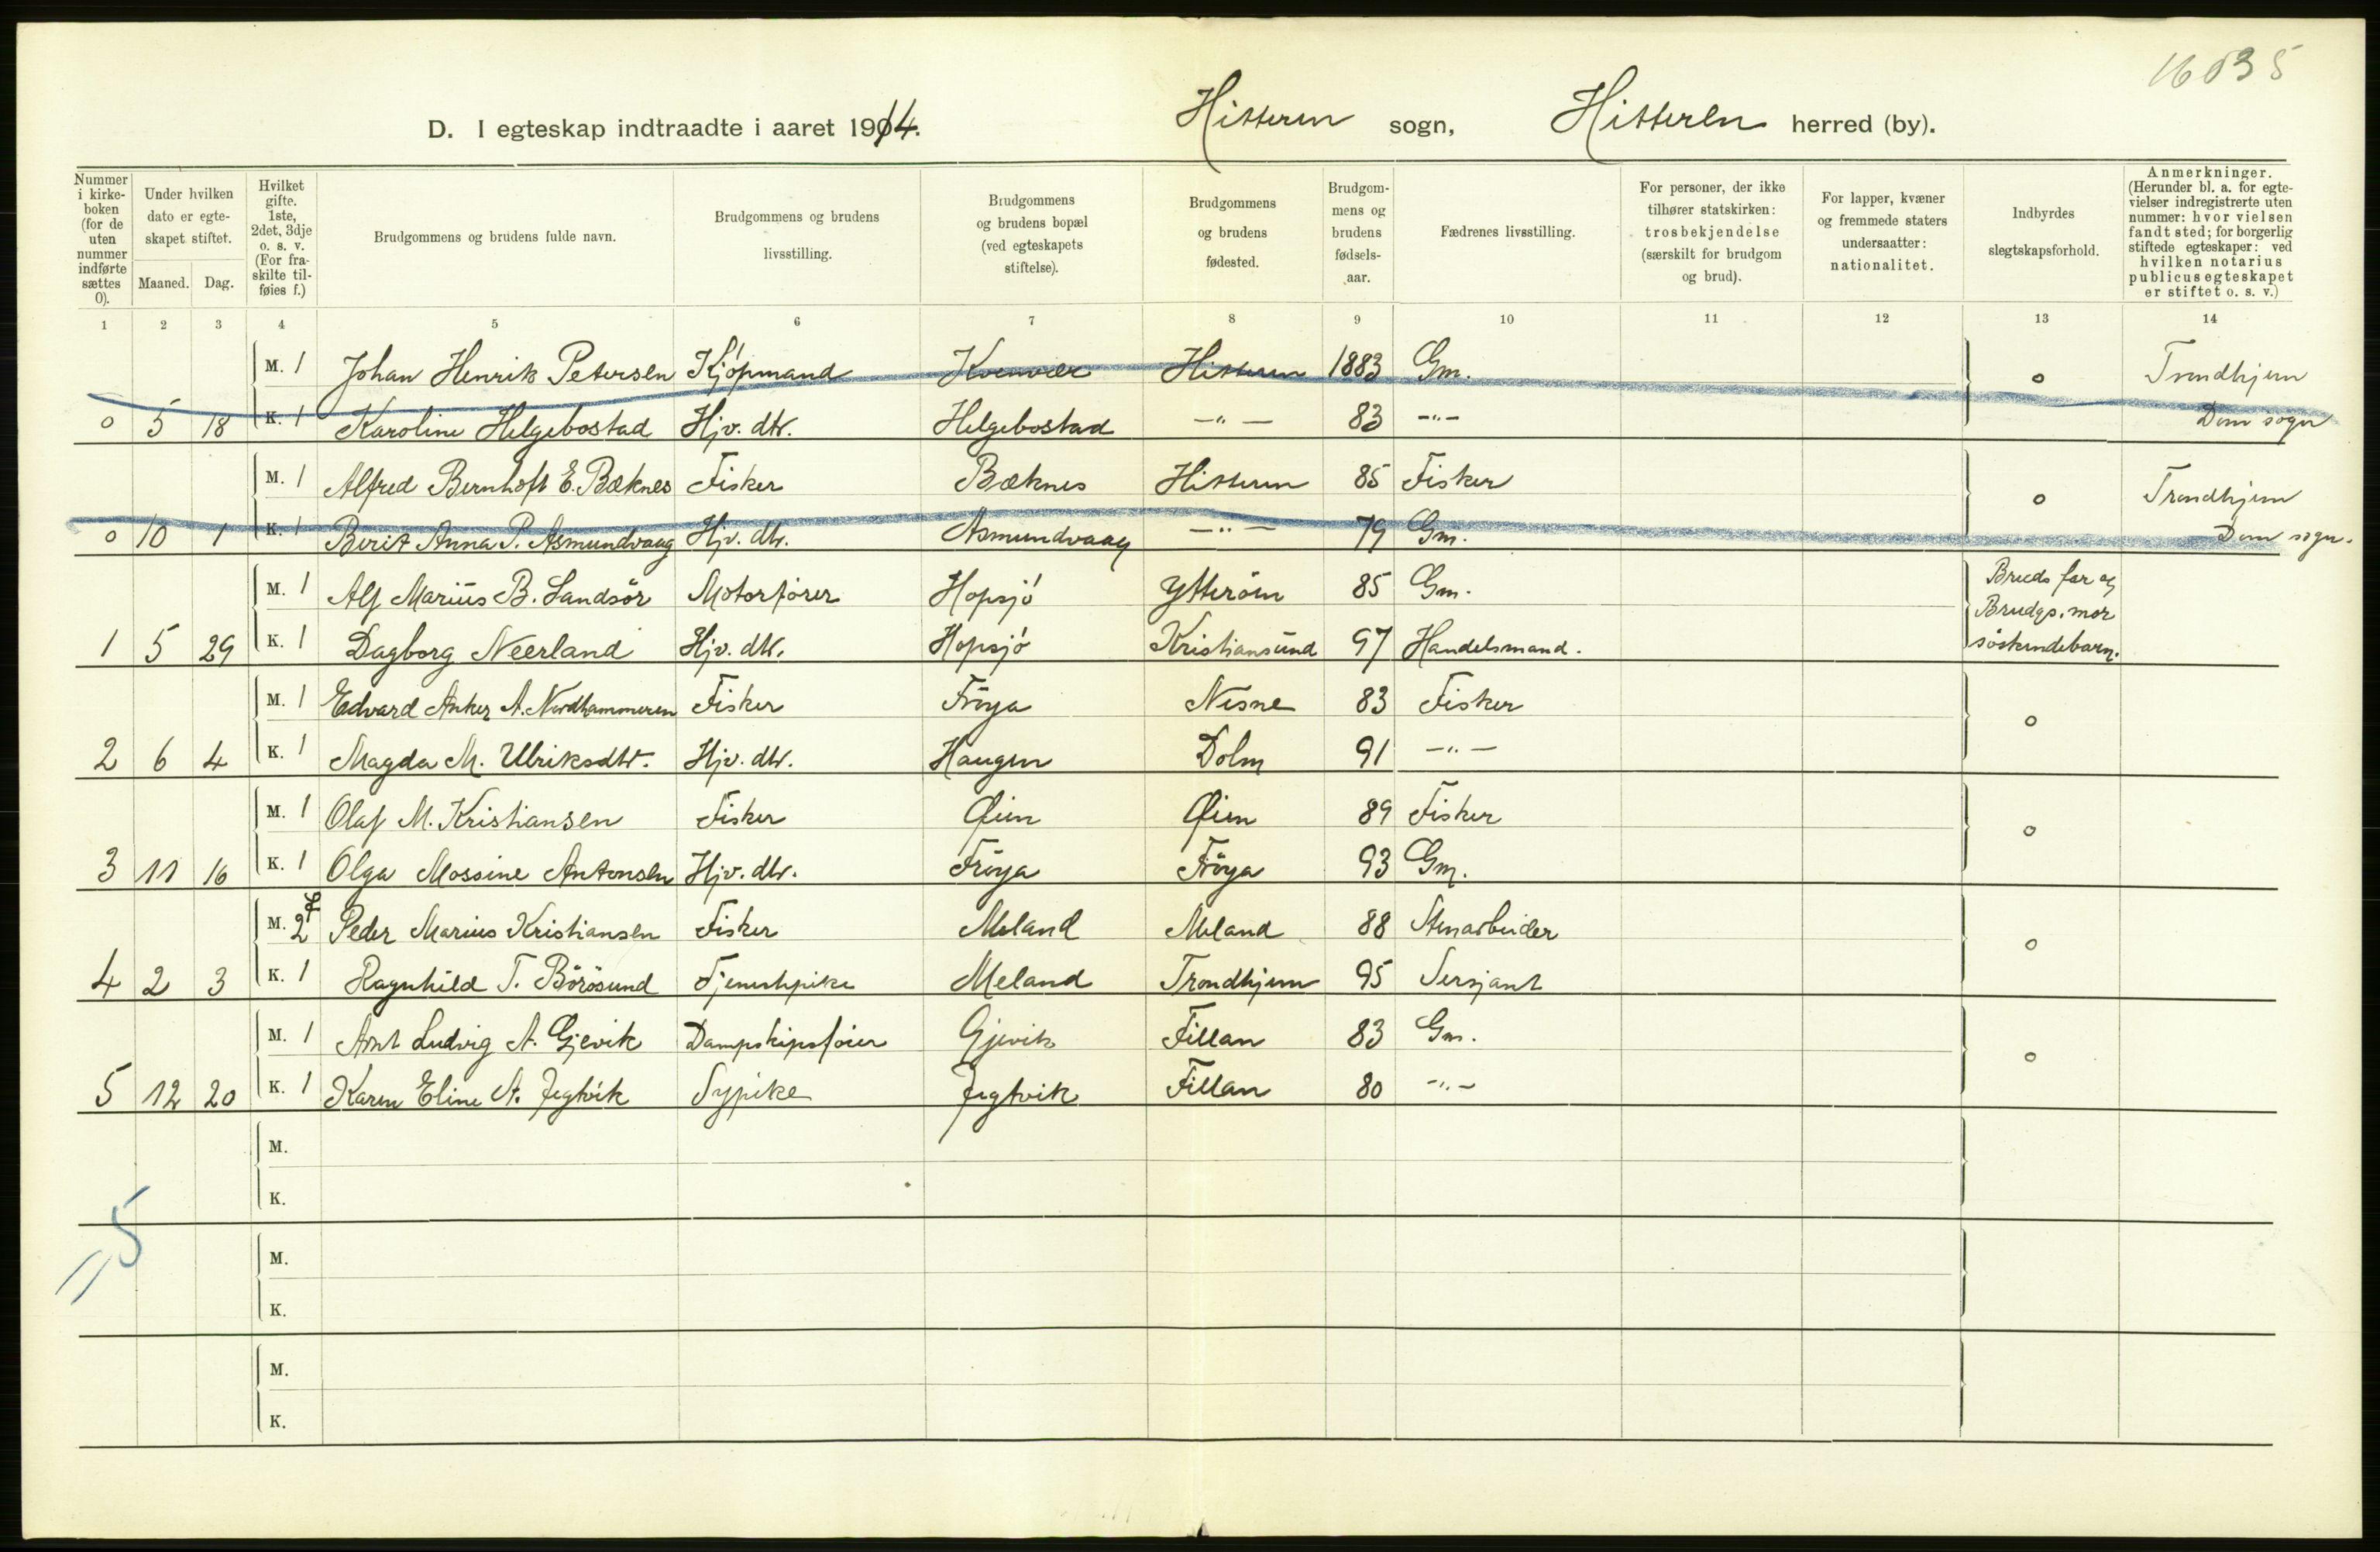 16035
D. I egteskap indtraadte i aaret 1914. Hitteren sogn, Hitteren herred (by).
Nummer i kirkeboken (for de uten nummer indførte sættes 0).
Under hvilken dato er egteskapet stiftet.
Maaned. Dag.
Hvilket gifte. 1ste, 2det, 3dje o. s. v. (For fraskilte tilføies f.)
Brudgommens og brudens fulde navn.
Brudgommens og brudens livsstilling.
Brudgommens og brudens bopæl (ved egteskapets stiftelse).
Brudgommens og brudens fødested.
Brudgommens og brudens fødselsaar.
Fædrenes livsstilling.
For personer, der ikke tilhører statskirken: trosbekjendelse (særskilt for brudgom og brud).
For lapper, kvæner og fremmede staters undersaatter: nationalitet.
Indbyrdes slegtskapsforhold.
Anmerkninger. (Herunder bl. a. for egtevielser indregistrerte uten nummer: hvor vielsen fandt sted; for borgerlig stiftede egteskaper: ved hvilken notarius publicus egteskapet er stiftet o. s. v.)
1 2 3 4 5 6 7 8 9 10 11 12 13 14
M. 1 Johan Henrik Petersen Kjópmand Hitteren 1883 Gm. o Trondhjem
0 5 18 K. 1 Karoline Helgebostad Hjv. dtr. Helgebostad -"- 83 -"- Dom sogn
M. 1 Alfred Bernhoft E. Bæknes Fisker Bæknes Hitteren 85 Fisker o Trondhjem
0 10 1 K. 1 Berit Anna P. Asmundvaag Hjv. dtr. Asmundvaag -"- 79 Gm. Dom sogn.
M. 1 Alf Marius B. Sandsör Motorfører Hopsjó Ytteröen 85 Gm. Bruds far og Brudgs. mor
1 5 29 K. 1 Dagborg Neerland Hjv. dtr. Hopsjó Kristiansund 97 Handelsmand. söskendebarn.
M. 1 Edvard Anker A. Nordhammeren Fisker Fröya Nesne 83 Fisker o
2 6 4 K. 1 Magda M. Ulriksdtr. Hjv. dtr. Haugen Dolm 91 -"-
M. 1 Olaf M. Kristiansen Fisker Øien Øien 89 Fisker o
3 11 16 K. 1 Olga Mossine Antonsen Hjv. dtr. Fröya Fröya 93 Gm.
M. 2 f Peder Marius Kristiansen Fisker Meland Meland 88 Stenarbeider o
4 2 3 K. 1 Ragnhild T. Börösund Tjenestepike Meland Trondhjem 95 Sersjant
M. 1 Arnt Ludvig A. Gjevik Dampskipsfører Gjevik Fillan 83 Gm. o
5 12 20 K. 1 Karen Eline A. Jegtvik Sypike Jegtvik Fillan 80 -"-
M.
K.
= 5
M.
K.
M.
K.